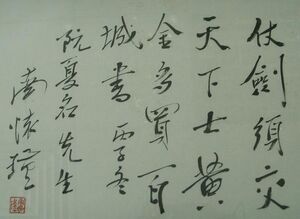 仗劍須交
天下士黄
金多買百
城書 丙子冬
夏名先生
南懷瑾